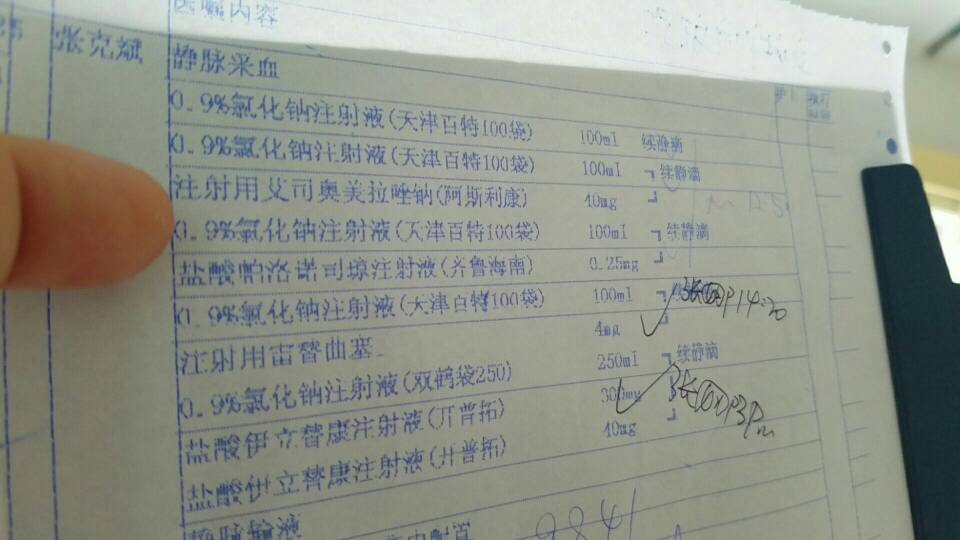 医嘱内容
张克斌
静脉采血
0.9%氯化钠注射液(天津百特100袋) 100ml 续静滴
0.9%氯化钠注射液(天津百特100袋) 100ml ┓续静滴
注射用艾司奥美拉唑钠(阿斯利康) 40mg ┛
0.9%氯化钠注射液(天津百特100袋) 100ml ┓续静滴
盐酸帕洛诺司琼注射液(齐鲁海南) 0.25mg ┛
0.9%氯化钠注射液(天津百特100袋) 100ml
注射用雷替曲塞 4mg ┛
0.9%氯化钠注射液(双鹤袋250) 250ml ┓续静滴
盐酸伊立替康注射液(开普拓) 300mg
盐酸伊立替康注射液(开普拓) 40mg ┛
静脉输液
9841